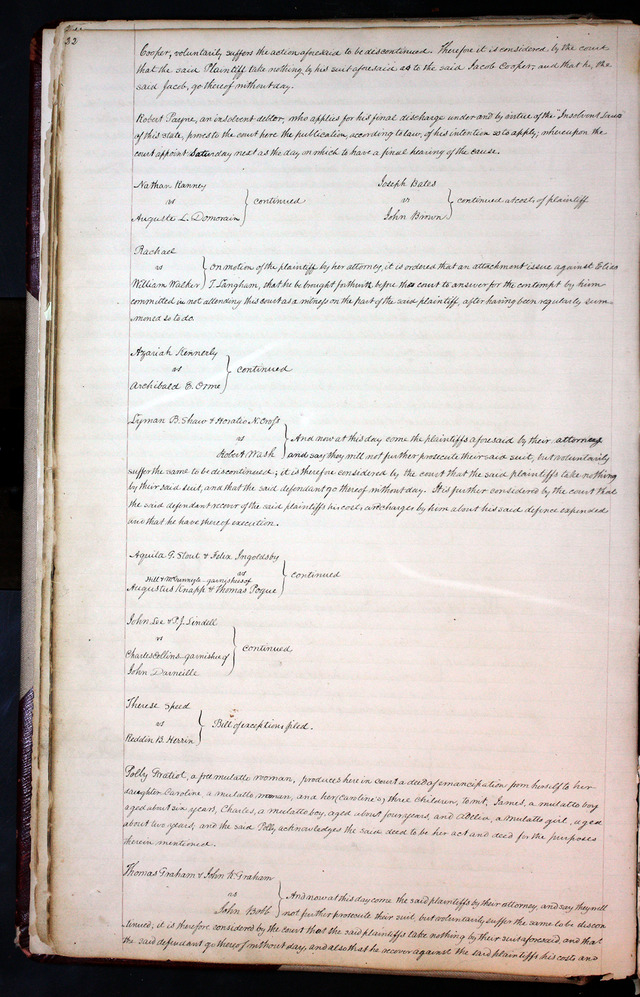 32
Cooper, voluntarily suffers the action aforesaid to be discontinued. Therefore it is considered by the court
that the said Plaintiff take nothing by his suit aforesaid as to the said Jacob Cooper, and that he, the
said Jacob, go thereof without day.
Robert Payne, an insolvent debtor, who applies for his final discharge under and by virtue of the "Insolvent Laws"
of this state, proves to the court here the publication, according to law, of his intention so to apply; whereupon the
court appoint Saturday next as the day on which to have a final hearing of the cause.
Nathan Ranney
vs
Auguste L. Demorain
} continued
Joseph Bates
vs
John Brown
} continued at costs of plaintiff
Rachael
vs
William Walker
} On motion of the plaintiff by her attorney, it is ordered that an attachment issue against Elias
T. Langham, that he be brought forthwith before this court to answer for the contempt by him
committed in not attending this court as a witness on the part of the said plaintiff, after having been regularly sum-
moned so to do.
Azariah Kennerly
vs
Archibald E. Orme
} continued
Lyman B. Shaw & Horatio N. Cross
vs
Robert Wash
} And now at this day come the plaintiffs aforesaid by their attorney
and say they will not further prosecute their said suit, but voluntarily
suffer the same to be discontinued; it is therefore considered by the court that the said plaintiffs take nothing
by their said suit, and that the said defendant go thereof without day. It is further considered by the court that
the said defendant recover of the said plaintiffs his costs and charges by him about his said defence expended
and that he have thereof execution.
Aquila G. Stout & Felix Ingoldsby
vs
Hill & McGunnegle garnishees of
Augustus Knapp & Thomas Pogue
} continued
John Lee & P. J. Lindell
vs
Charles Collins garnishee of
John Darneille
} continued
Therese Speed
vs
Reddin B. Herrin
} Bill of exceptions filed.
Polly Gratiot, a free mulatto woman, produces here in court a deed of emancipation from herself to her
daughter Caroline, a mulatto woman, and her (Caroline's) three children, to wit, James, a mulatto boy
aged about six years, Charles, a mulatto boy, aged about four years, and a mulatto girl, aged
about two years, and the said Polly acknowledges the said deed to be her act and deed for the purposes
therein mentioned.
Thomas Graham & John K Graham
vs
John Bobb
} And now at this day come the said plaintiffs by their attorney, and say they will
not further prosecute their suit, but voluntarily suffer the same to be discon
tinued; it is therefore considered by the court that the said plaintiffs take nothing by their suit aforesaid, and that
the said defendant go thereof without day, and also that he recover against the said plaintiffs his costs and